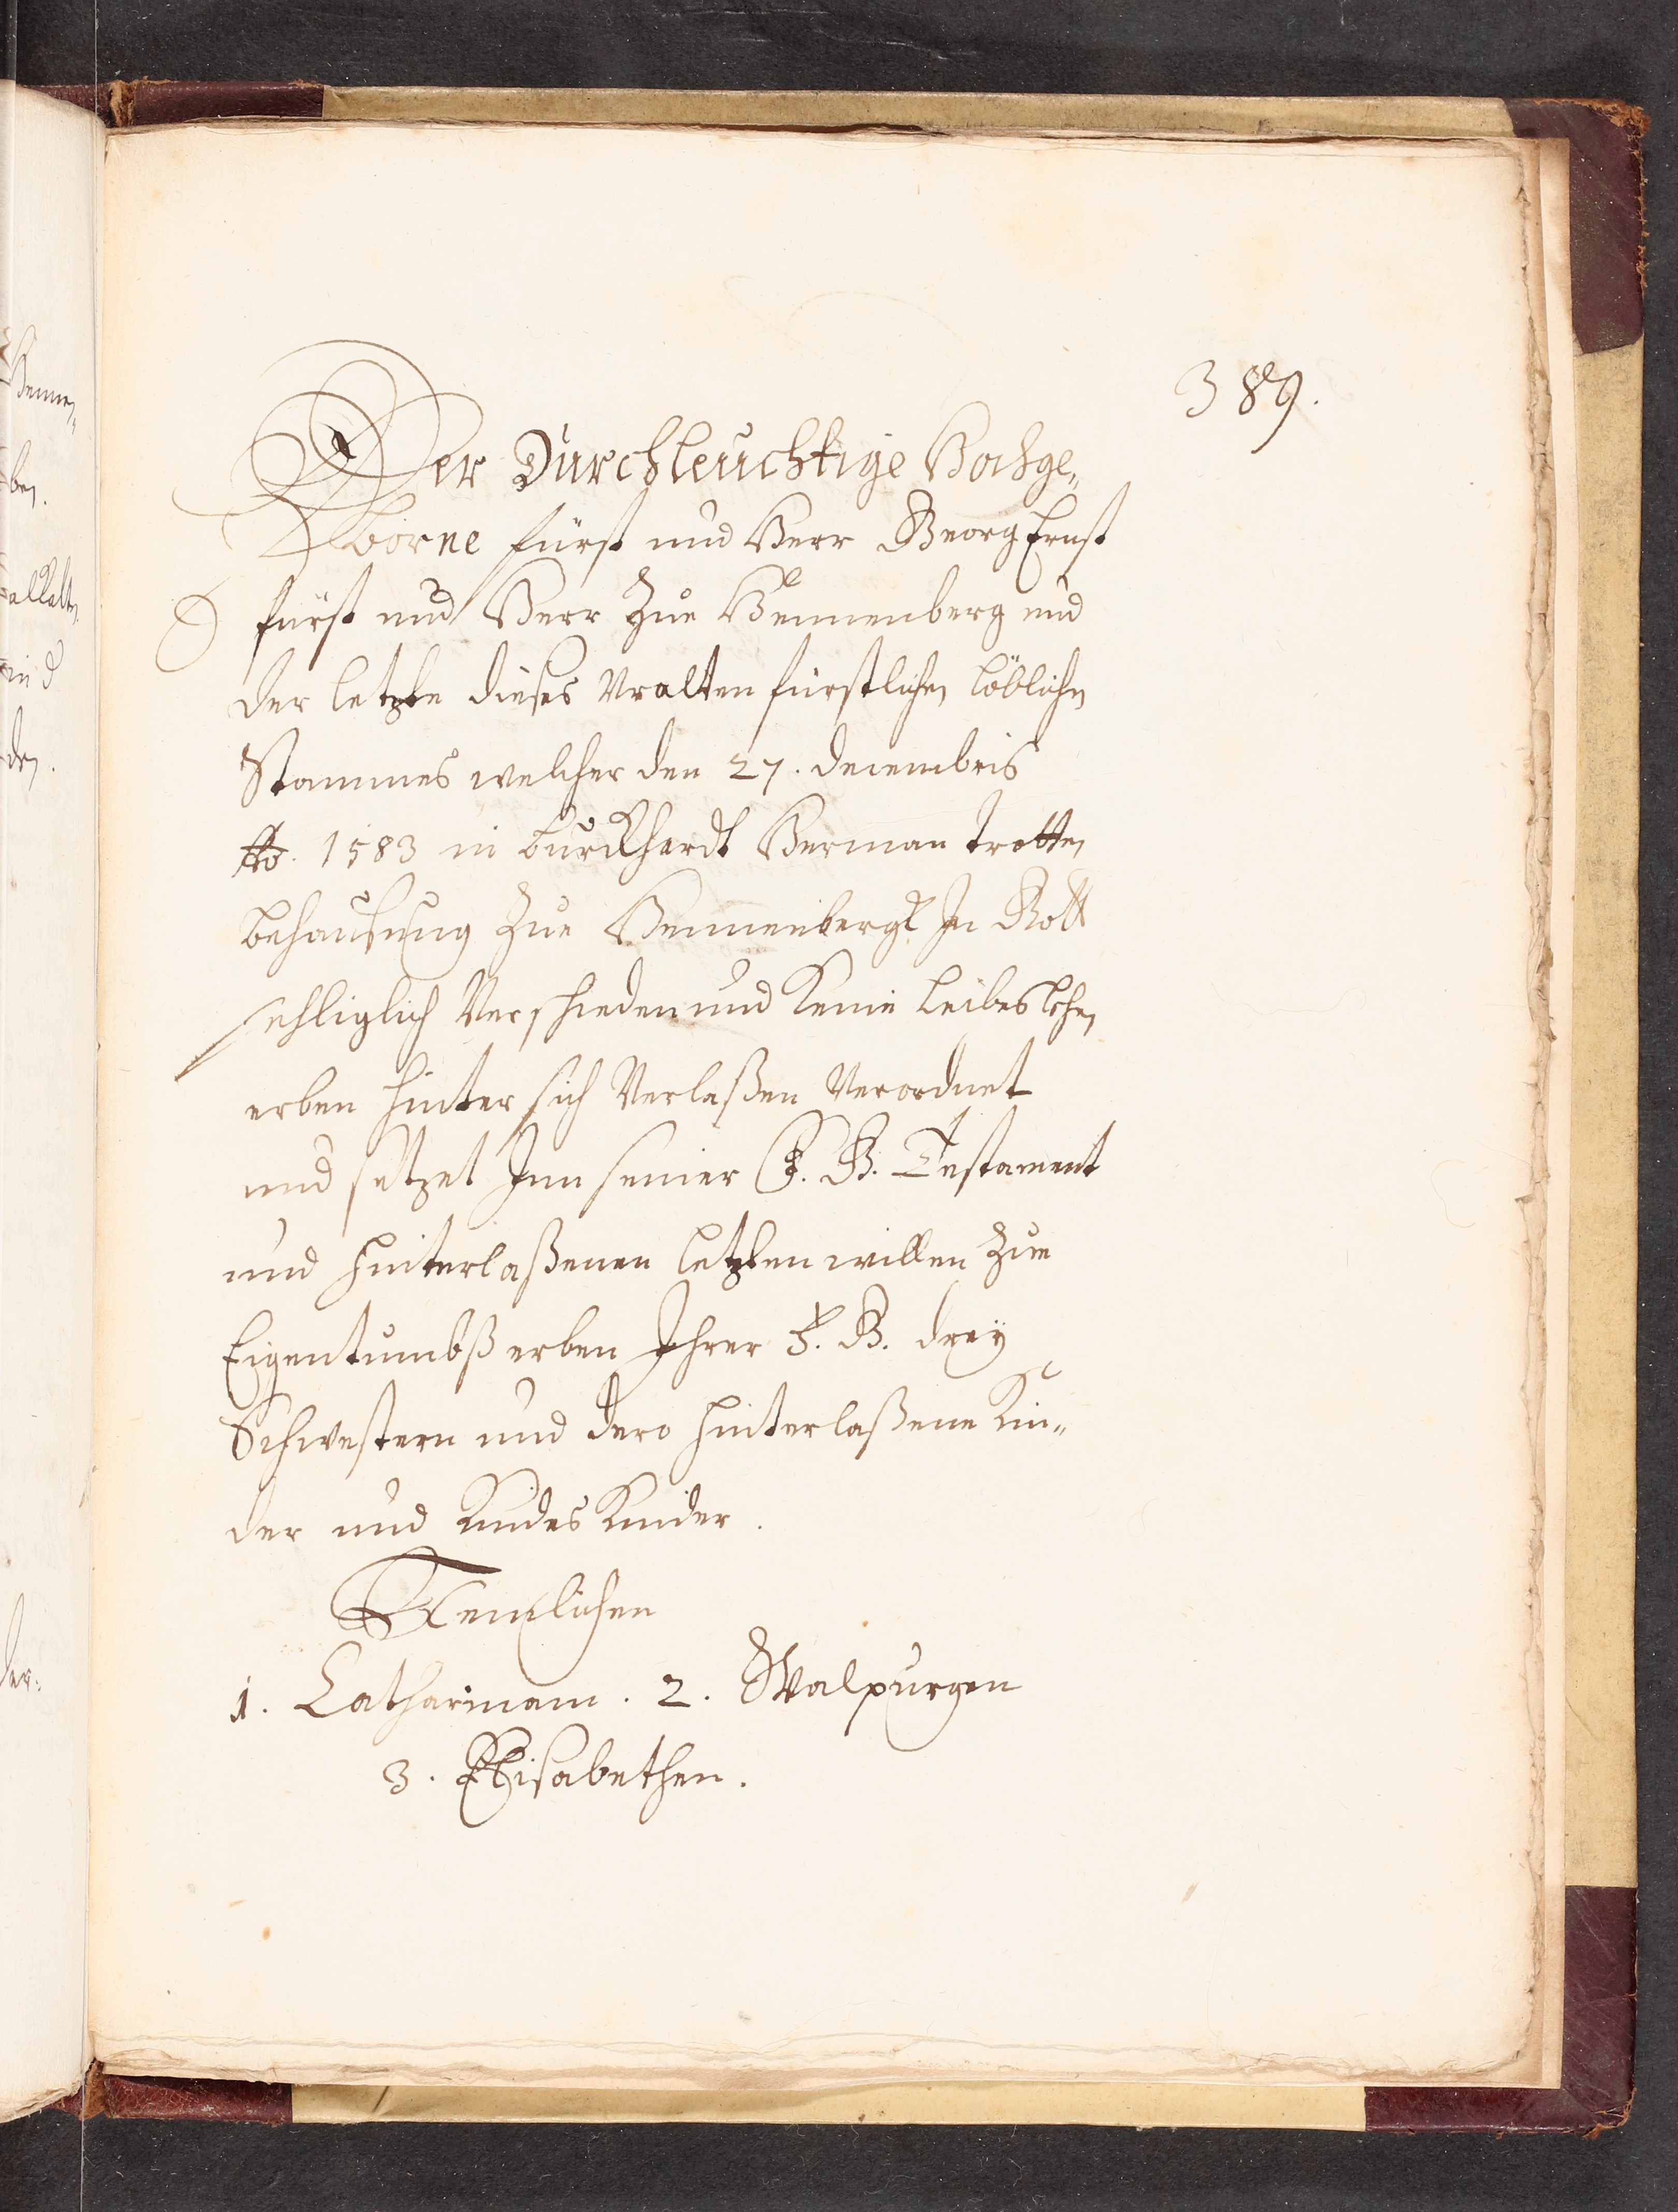 389.
Der Durchleuchtige Hochge„
borne fürst und Herr Georg Ernst
fürst und Herr Zue Hennenberg und
der letzte dieses Uralten fürstlichen löblichen
Stammes welcher den 27. decembris
Ao. 1583 in burckhardt Herman trotten
behausung Zue Hennenbergk In Gott
sehliglich Verschieden und Keine leibes lehen
erben hinter sich Verlaßen Verordnet
und setzet Inn seiner F. G. Testament
und hinterlaßenen letzten willen Zue
Eigentumbß erben Ihrer F. G. dreÿ
Schwestern und dero hinterlaßene Kin„
der und Kindes Kinder.
Nemlichen
1. Catharinam. 2. Walpurgen
3. Elisabethen.